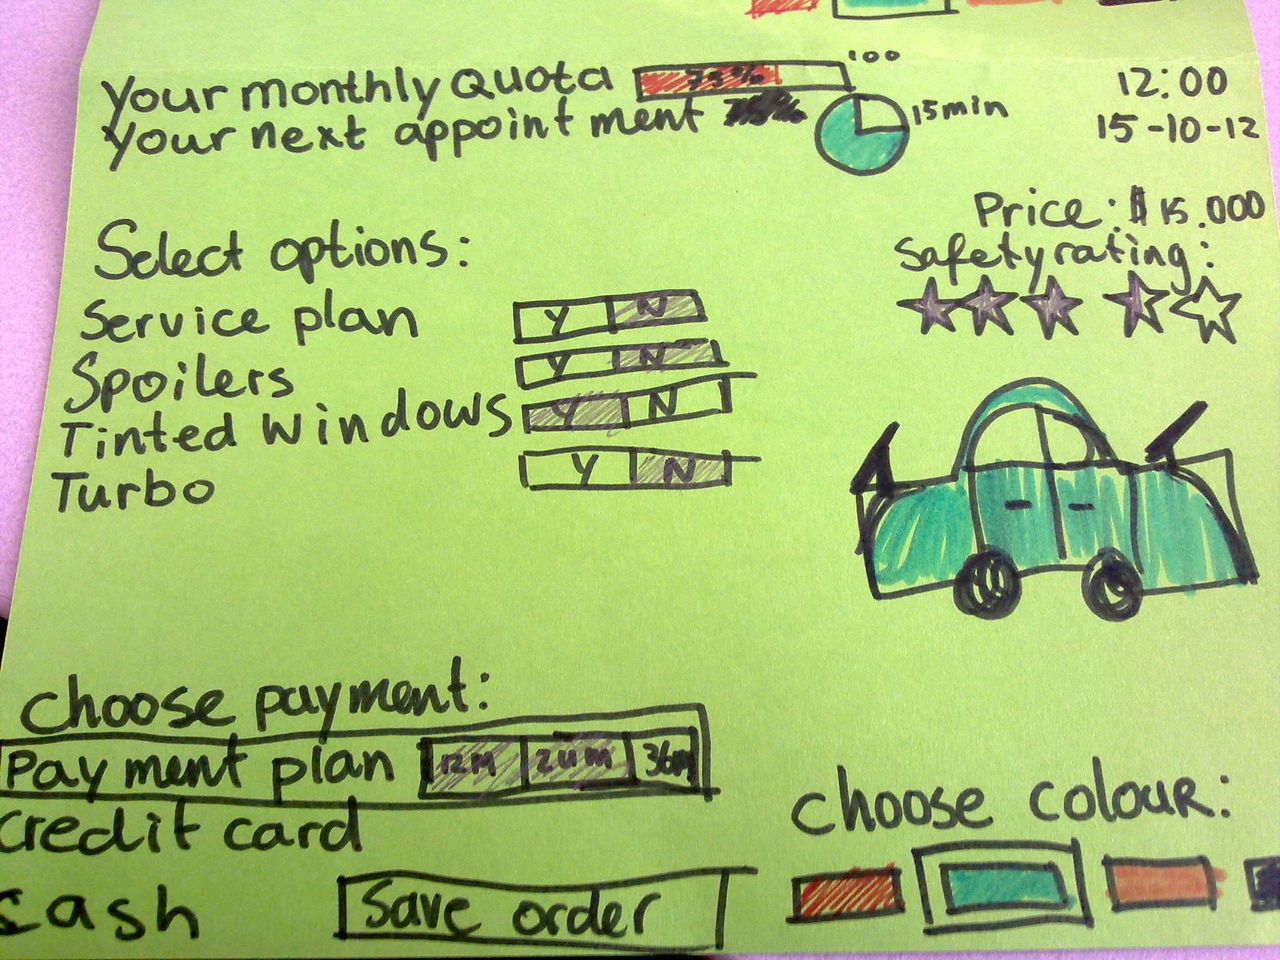 Your monthly Quota 75% 100
Your next appointment 15min
12:00
15-10-12
Price: $15.000
Safety rating:
Select options:
Service plan Y N
Spoilers Y N
Tinted Windows Y N
Turbo Y N
Choose payment:
Payment plan 12M 24M 36M
Credit card
Cash
Save order
Choose colour: